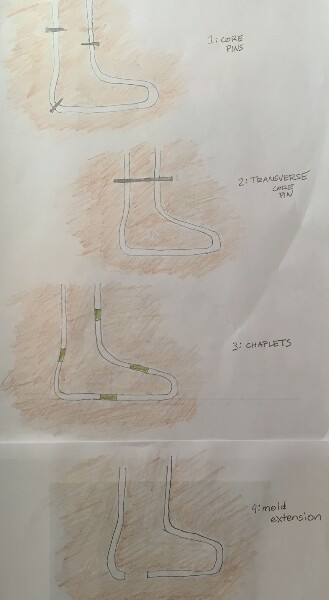 1: CORE
PINS
2: TRANSVERSE
CORE
PIN
3: CHAPLETS
4: mold
extension